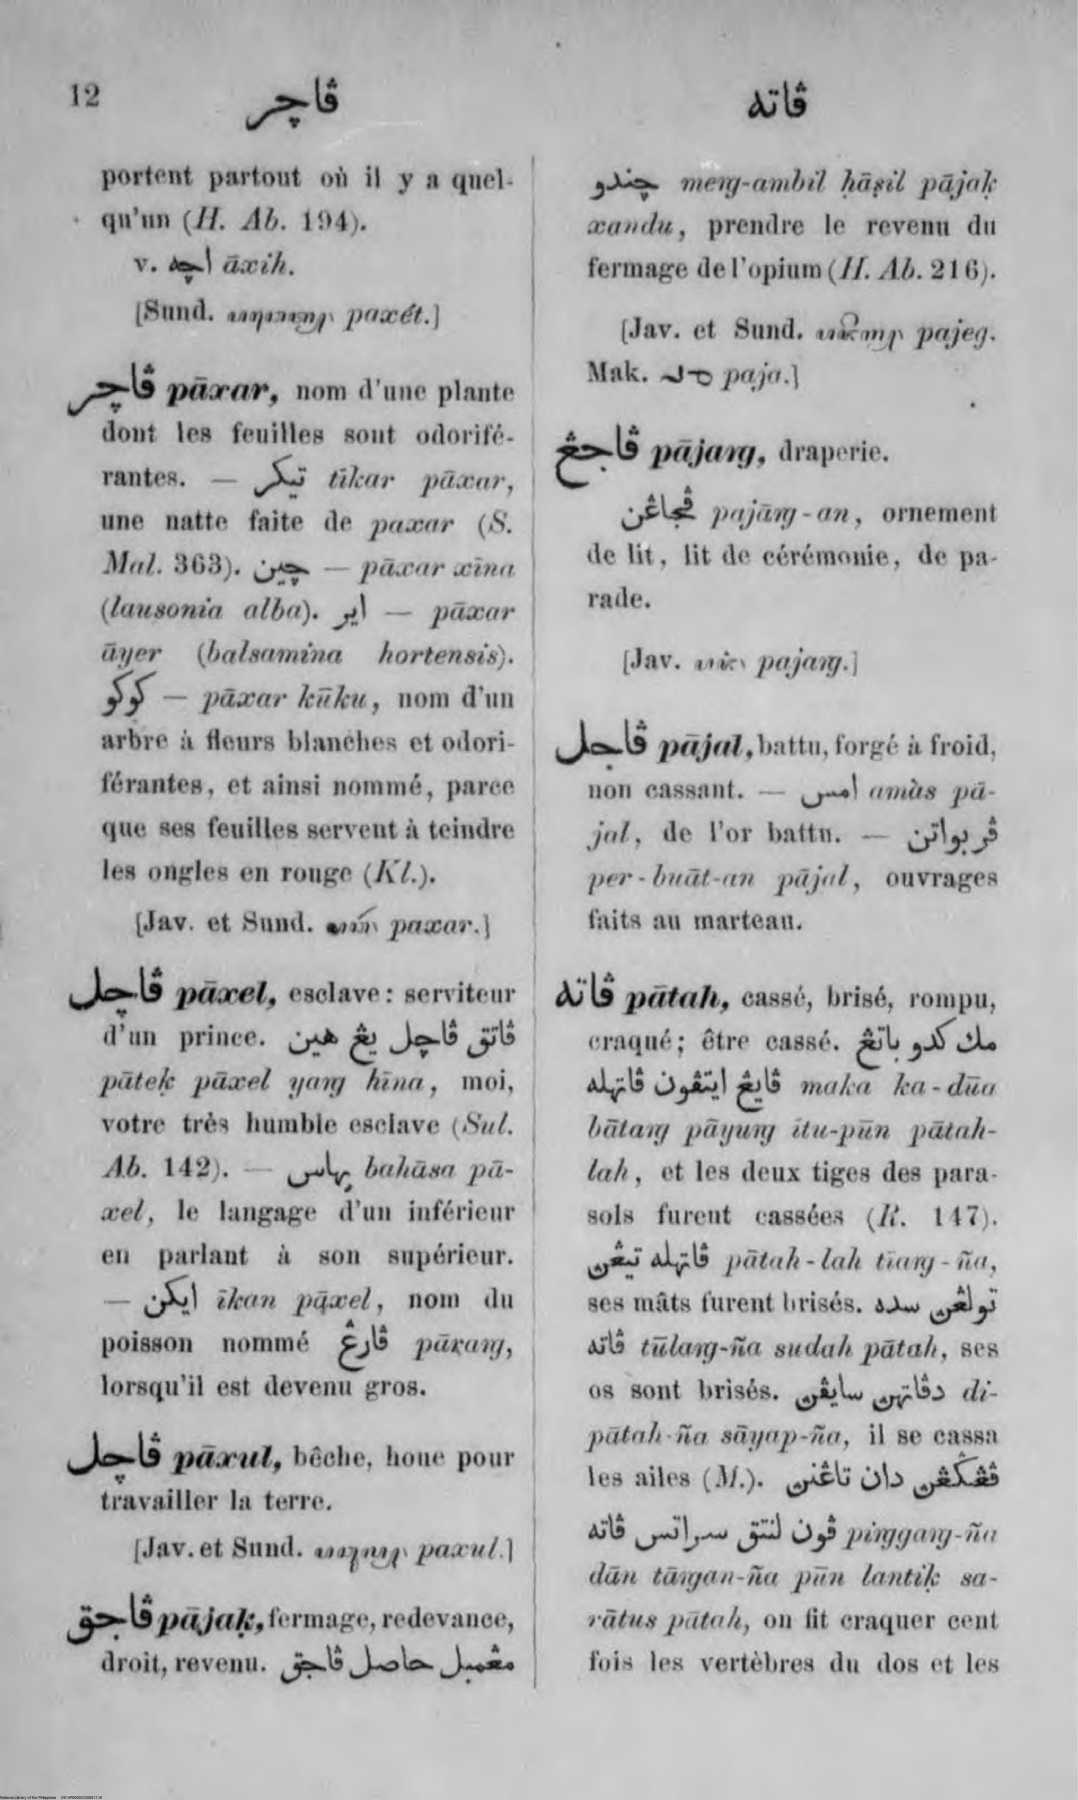 12
ڤاچر
ڤاته
portent partout où il y a quel-
qu'un (H. Ab. 194).
v. اچه āxih.
[Sund. paxét.]
ڤاچر pāxar, nom d'une plante
dont les feuilles sont odorifé-
rantes. — تيكر tīkar pāxar,
une natte faite de paxar (S.
Mal. 363). چين — pāxar xīna
(lausonia alba). اير — pāxar
āyer (balsamina hortensis).
كوكو — pāxar kūku, nom d'un
arbre à fleurs blanches et odori-
férantes, et ainsi nommé, parce
que ses feuilles servent à teindre
les ongles en rouge (Kl.).
[Jav. et Sund. paxar.]
ڤاچل pāxel, esclave: serviteur
d'un prince. ڤاتق ڤاچل يڠ هين
pātek̩ pāxel yaṛg hīna, moi,
votre très humble esclave (Sul.
Ab. 142). — بهاس bahāsa pā-
xel, le langage d'un inférieur
en parlant à son supérieur.
— ايكن īkan pāxel, nom du
poisson nommé ڤارڠ pāraṛg,
lorsqu'il est devenu gros.
ڤاچل pāxul, bêche, houe pour
travailler la terre.
[Jav. et Sund. paxul.]
ڤاجق pājak̩, fermage, redevance,
droit, revenu. مڠمبل حاصل ڤاجق
چندو meṛg-ambil ḥāṣil pājak̩
xandu, prendre le revenu du
fermage de l'opium (H. Ab. 216).
[Jav. et Sund. pajeg.
Mak. paja.]
ڤاجڠ pājaṛg, draperie.
ڤجاڠن pajāṛg-an, ornement
de lit, lit de cérémonie, de pa-
rade.
[Jav. pajaṛg.]
ڤاجل pājal, battu, forgé à froid,
non cassant. — امس amàs pā-
jal, de l'or battu. — ڤربواتن
per-buāt-an pājal, ouvrages
faits au marteau.
ڤاته pātah, cassé, brisé, rompu,
craqué; être cassé. مك كدو باتڠ
ڤايڠ ايتڤون ڤاتهله maka ka-dūa
bātaṛg pāyuṛg ītu-pūn pātah-
lah, et les deux tiges des para-
sols furent cassées (R. 147).
ڤاتهله تيڠن pātah-lah tīaṛg-ña,
ses mâts furent brisés. تولڠن سده
ڤاته tūlaṛg-ña sudah pātah, ses
os sont brisés. دڤاتهن سايڤن di-
pātah-ña sāyap-ña, il se cassa
les ailes (M.). ڤڠڬڠن دان تاڠنن
ڤون لنتق سراتس ڤاته piṛggaṛg-ña
dān tāṛgan-ña pūn lantik̩ sa-
rātus pātah, on fit craquer cent
fois les vertèbres du dos et les